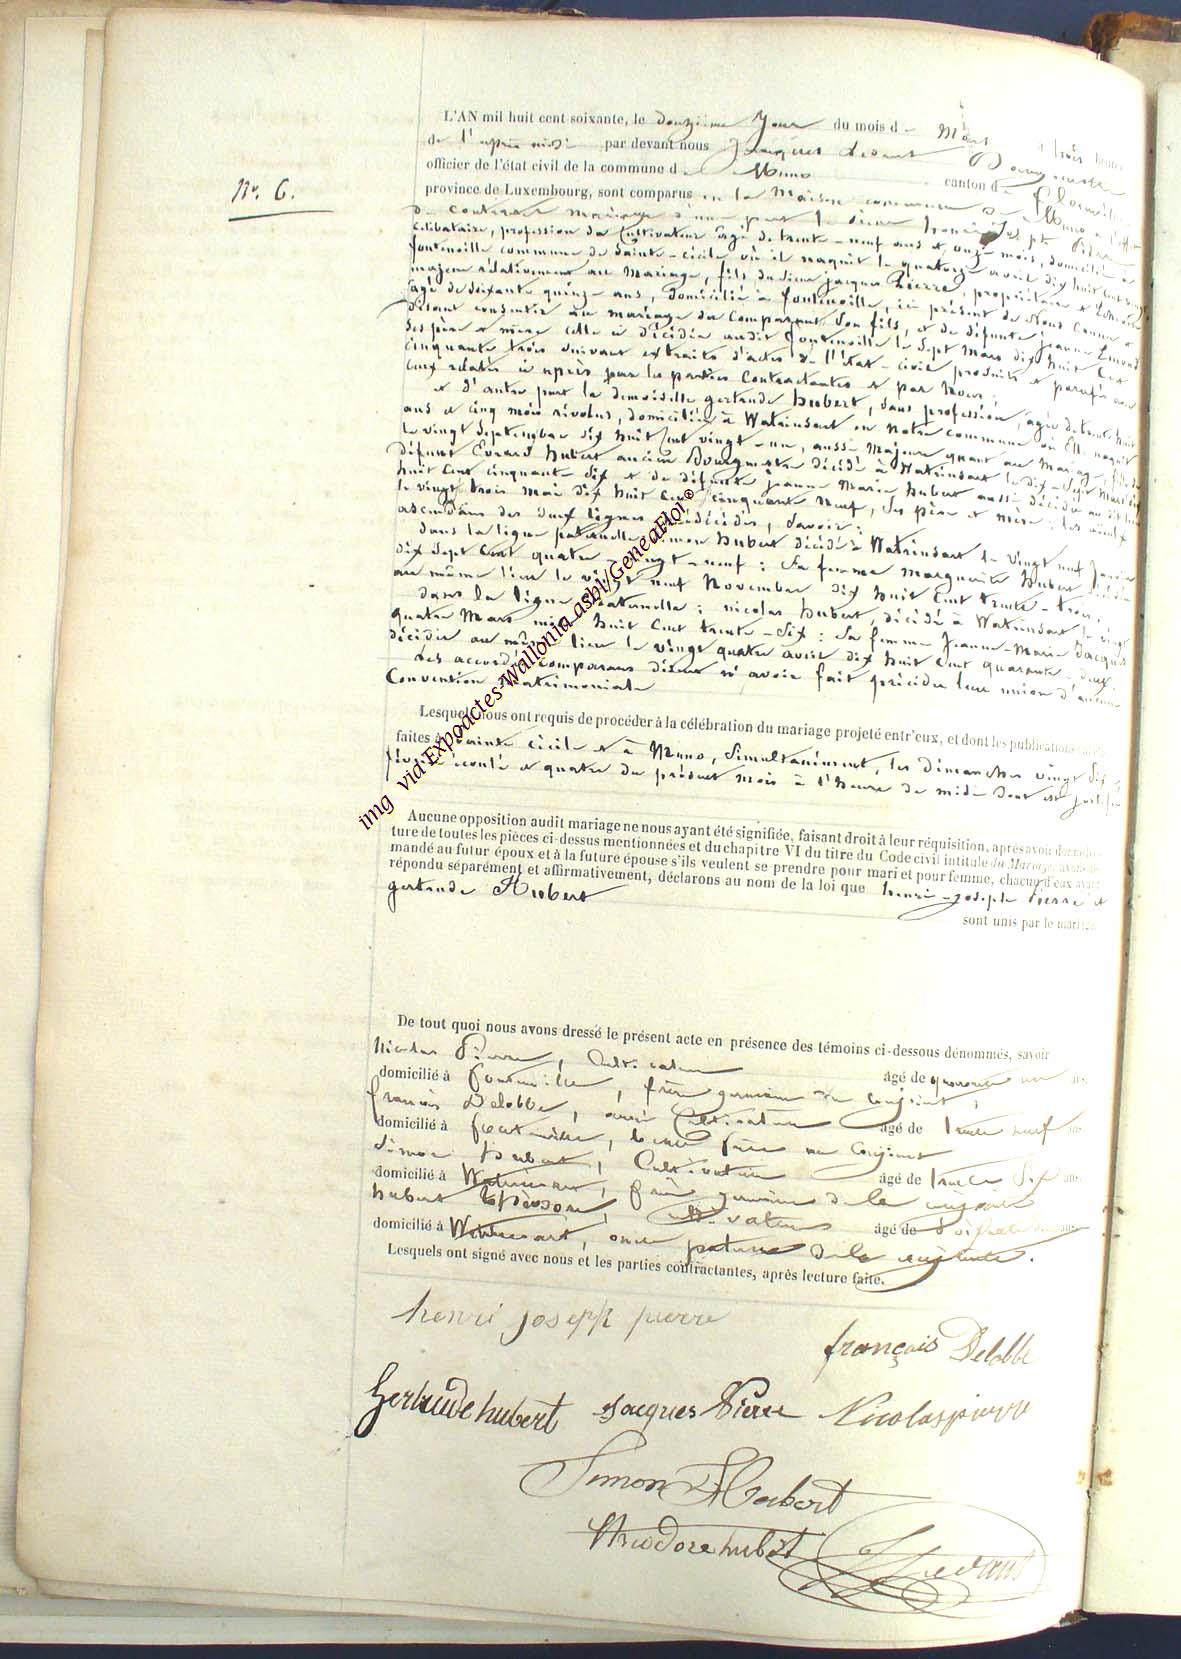 L'AN mil huit cent soixante, le douzième jour du mois d mars à trois heures
de l'après midi par devant nous Jacques Bourgmestre
officier de l'état civil de la commune de Muno canton de Florenville
province de Luxembourg, sont comparus en la maison commune de Muno
N°. 6.
de contracter mariage d'une part le sieur henri Joseph Pierre
célibataire, profession de Cultivateur agé de trente-neuf ans et onze mois, domicilié à
fontenoille commune de Sainte-cécile où il naquit le quatorze avril dix huit cent vingt
majeur rélativement au Mariage, fils du sieur jacques Pierre, propriétaire et
agé de soixante quinze ans, domicilié à fontenoille, ici présent de Nous Connu et
disant consentir au mariage du Comparant Son fils, et de défunte jeanne
Ses père et mère celle ci décédée audit fontenoille le Sept Mars dix huit Cent
cinquante trois suivant extraits d'actes de l'état-civil produits et parafés
ceux relatés ci après par les parties Contractantes et par Nous;
et d'autre part la demoiselle gertrude hubert, sans profession, agée de trente huit
ans et cinq mois révolus, domiciliée à Watrinsart en notre commune où Elle naquit
le vingt Septembre dix huit Cent vingt-un, aussi Majeure quant au Mariage, fille de
défunt Evrard hubert ancien Bourgmestre décédé à Watrinsart le dix-Sept Mars dix
huit Cent cinquante Six et de défunte jeanne Marie hubert aussi décédée au dit lieu
le vingt trois mai dix huit Cent cinquante Neuf, Ses père et mère; les aïeux
ascendans des deux lignes prédécédés, Savoir:
dans la ligne paternelle, Simon hubert décédé à Watrinsart le vingt neuf Janvier
dix Sept Cent quatre-vingt-neuf: Sa femme marguerite hubert décédée
au même lieu le vingt neuf Novembre dix huit Cent trente-trois.
dans la ligne Maternelle: nicolas hubert, décédé à Watrinsart le vingt
quatre Mars mil huit Cent trente-Six: Sa femme Jeanne-Marie Jacques
décédée au même lieu le vingt quatre avril dix huit Cent quarante-deux.
Les accordés Comparans disent n'avoir fait précéder leur union d'aucune
Convention Matrimoniale
img via Expoactes Wallonia asbl/GeneaFloi ©
Lesquels nous ont requis de procéder à la célébration du mariage projeté entr'eux, et dont les publications
faites à Sainte cécile et à Muno, Simultanément, les dimanches vingt Six
février écoulé et quatre du présent mois à l'heure de midi dont est justifié
Aucune opposition audit mariage ne nous ayant été signifiée, faisant droit à leur réquisition, après avoir donné
ture de toutes les pièces ci-dessus mentionnées et du chapitre VI du titre du Code civil intitulé du Mariage, avons
mandé au futur époux et à la future épouse s'ils veulent se prendre pour mari et pour femme, chacun d'eux ayant
répondu séparément et affirmativement, déclarons au nom de la loi que henri-joseph Pierre et
gertrude Hubert
sont unis par le mariage.
De tout quoi nous avons dressé le présent acte en présence des témoins ci-dessous dénommés, savoir
Nicolas Pierre, Cultivateur âgé de quarante un ans
domicilié à fontenoille, frère germain du conjoint,
françois Delobbe, aussi Cultivateur âgé de trente neuf ans
domicilié à fontenoille, beau frère au Conjoint
Simon hubert, Cultivateur âgé de trente Six ans
domicilié à Watrinsart, frère germain de la conjointe
hubert Théodore, Cultivateur âgé de Soixante ans
domicilié à Watrinsart, oncle paternel de la conjointe.
Lesquels ont signé avec nous et les parties contractantes, après lecture faite.
henri joseph pierre
françois Delobbe
Gertrude hubert Jacques Pierre Nicolas pierre
Simon Hubert
théodore hubert